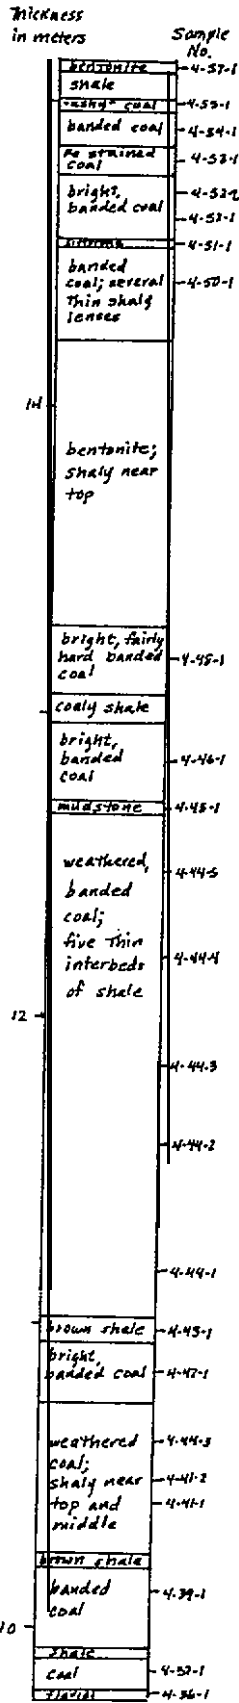 Thickness
in meters
Sample
No.
bentonite
4-57-1
shale
"ashy" coal
4-55-1
banded coal
4-54-1
Fe stained
coal
4-53-1
bright,
banded coal
4-52-2
4-52-1
4-51-1
banded
coal; several
thin shaly
lenses
4-50-1
14
bentonite;
shaly near
top
bright, fairly
hard banded
coal
4-48-1
coaly shale
bright,
banded
coal
4-46-1
mudstone
4-45-1
weathered,
banded
coal;
five thin
interbeds
of shale
4-44-5
4-44-4
12
4-44-3
4-44-2
4-44-1
brown shale
4-43-1
bright,
banded coal
4-42-1
weathered
coal;
shaly near
top and
middle
4-41-3
4-41-2
4-41-1
brown shale
banded
coal
4-39-1
10
shale
coal
4-37-1
4-36-1